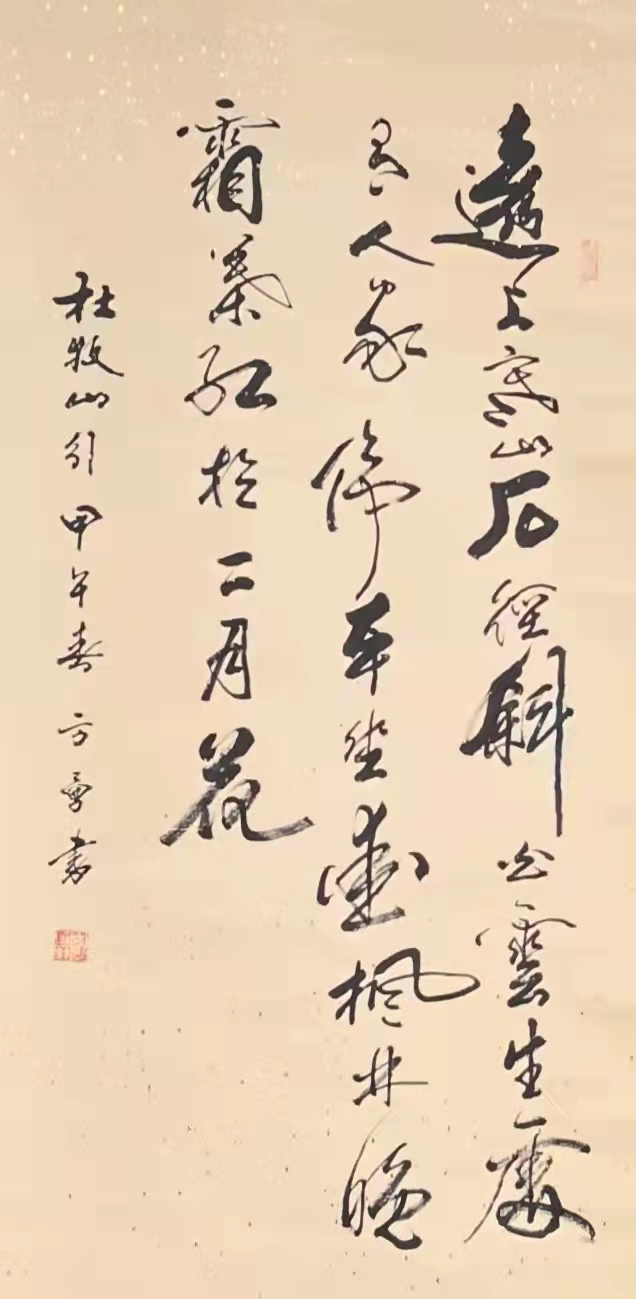 遠上寒山石径斜白雲生處
有人家停车坐愛楓林晚
霜葉红於二月花
杜牧山行甲午春方勇書